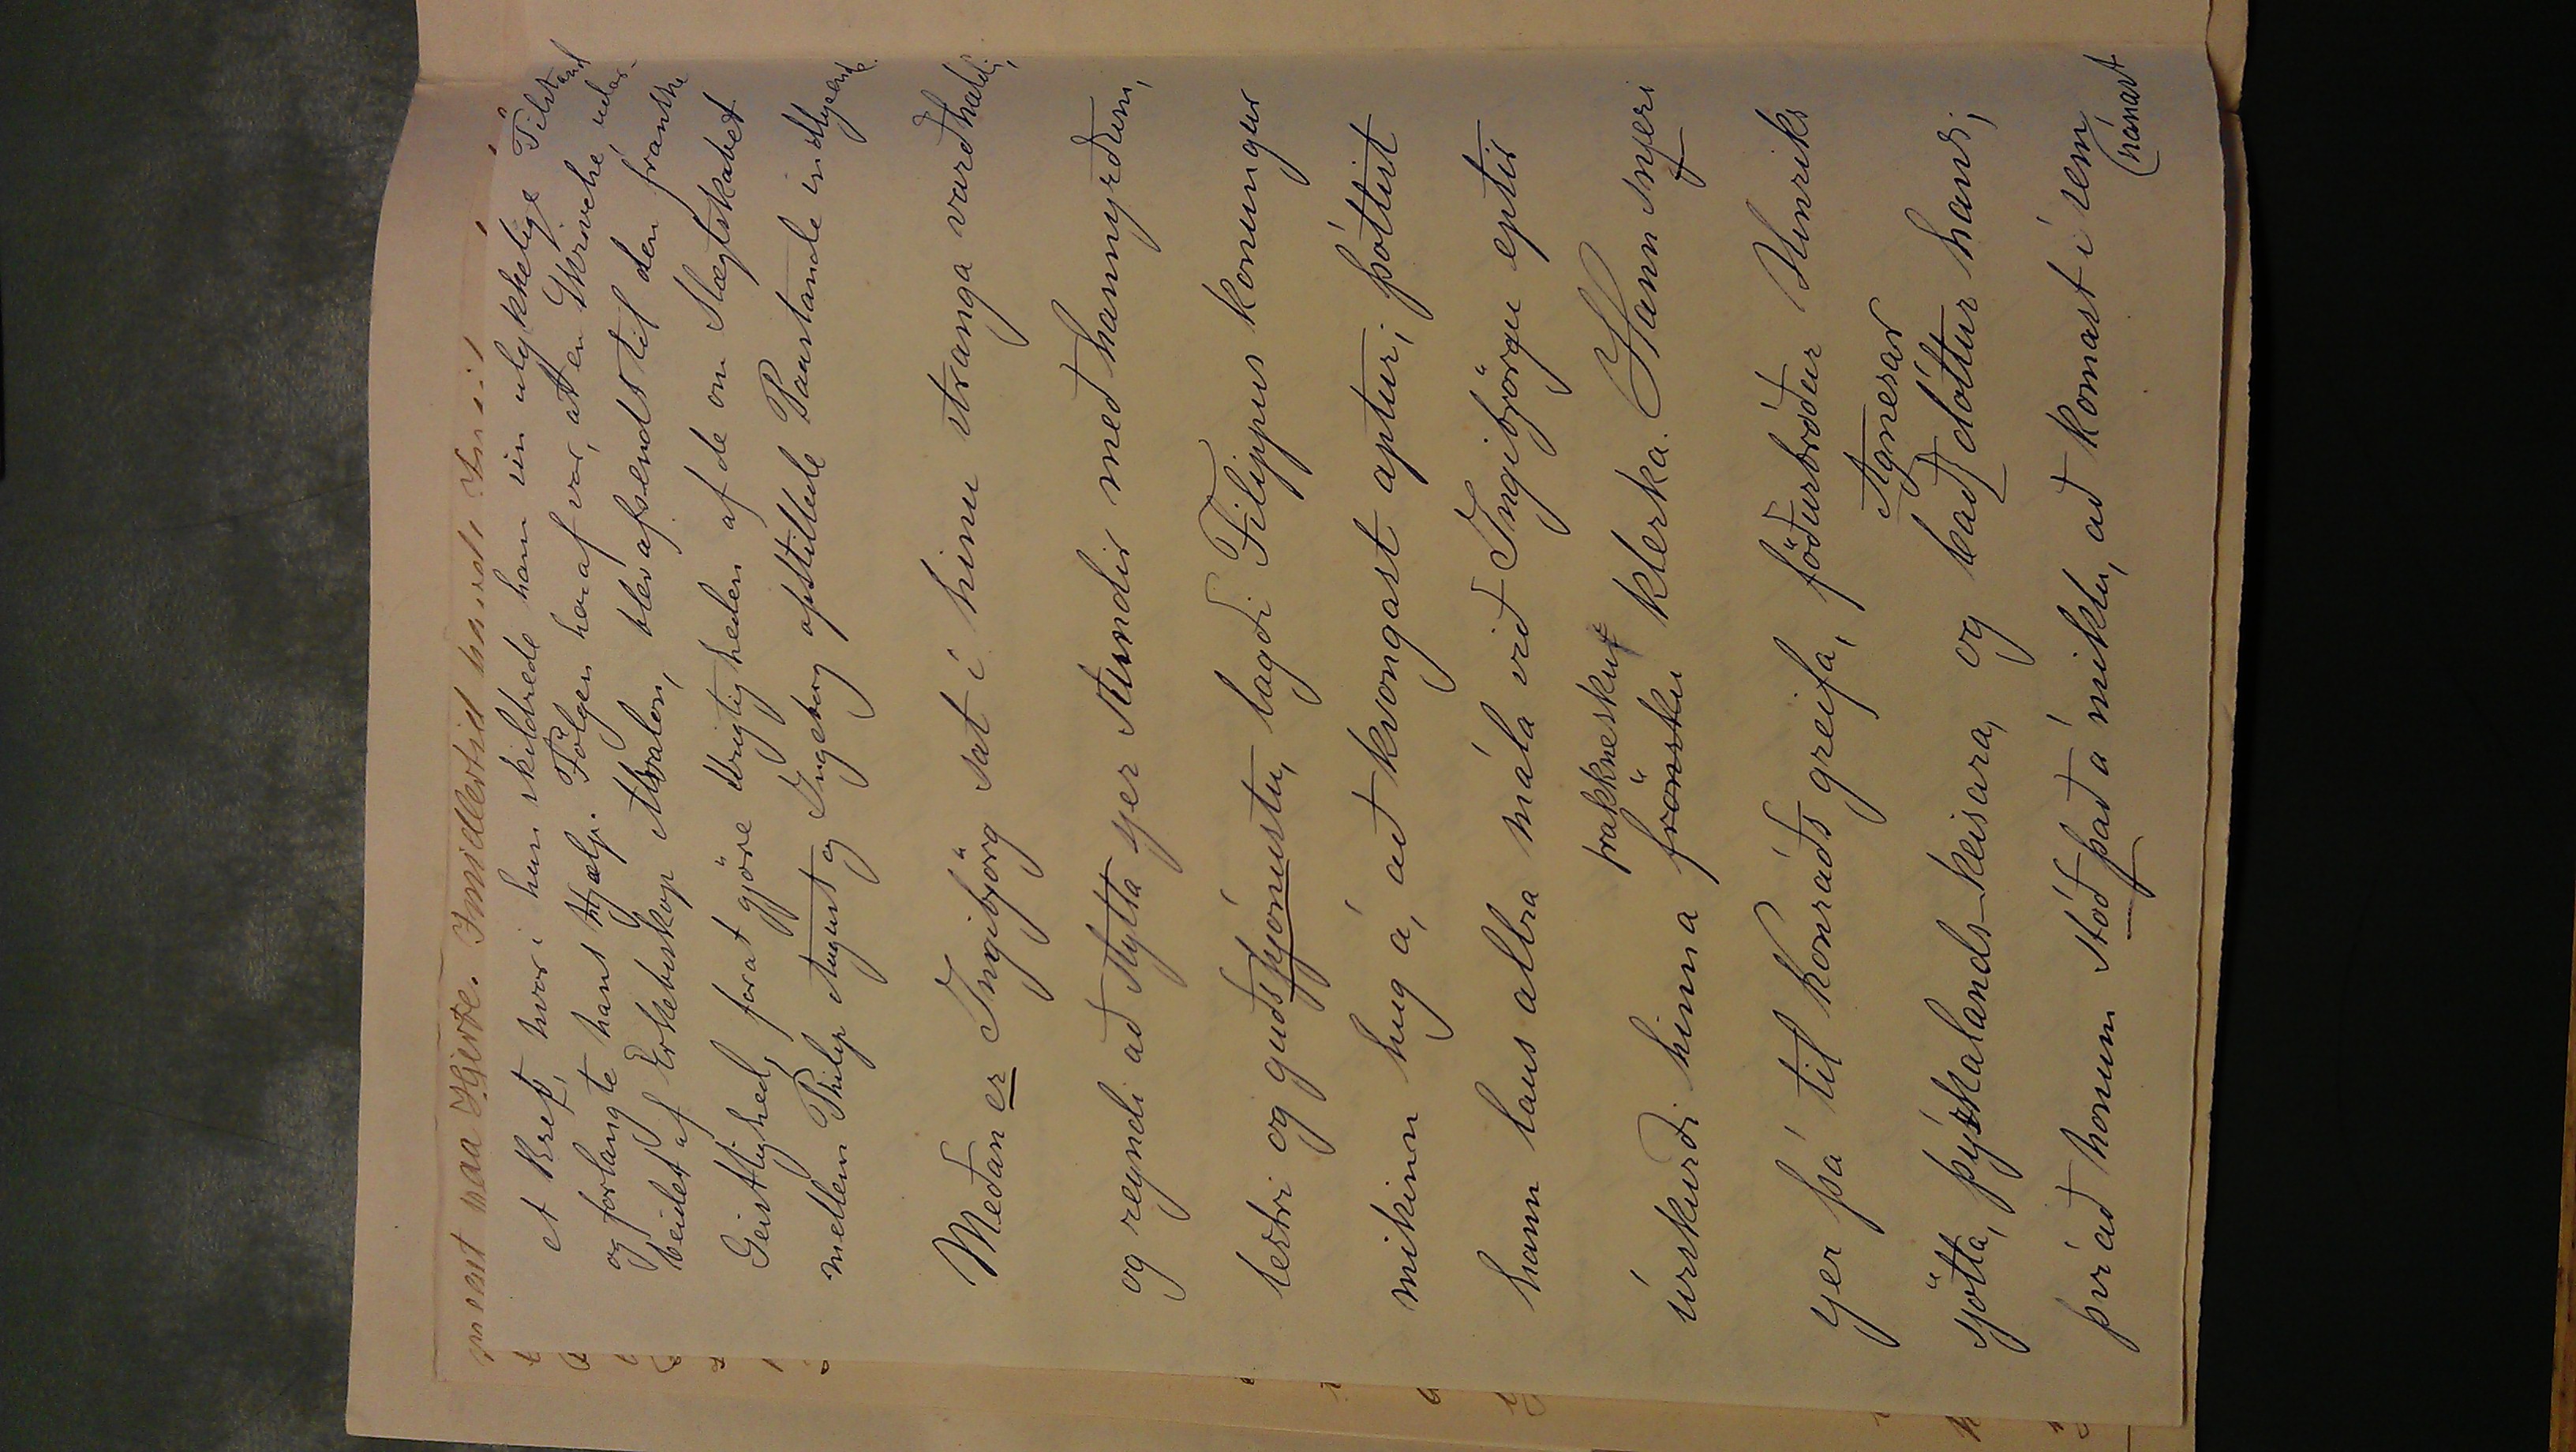 ment paa Hjerte. Imidlertid havde
et Brev, hvori hun skildrede ham sin ulykkelige Tilstand
og forlangte hans Hjælp. Følgen heraf var, at en Skrivelse udar-
beidet af Erkebiskop Absalon, blev afsendt til den franske
Geistlighed, forat gjöre Urigtigheden af de om Slægtskabet
mellem Philip August og Ingeborg opstillede Paastande indlysende.
Meðan er Ingibjörg sat í hinu stranga varðhaldi,
og reyndi að stytta sjer stundir með hannyrðum,
lestri og guðsþjónustu, lagði Filippus konungur
mikinn hug á, að kvongast aptur; þóttist
hann laus allra mála við Ingibjörgu eptir
frakknesku
úrskurði hinna frönsku klerka. Hann snjeri
sjer þá til Konráðs greifa, föðurbróður Hinriks
Agnesar
sjötta, þýzkalands-keisara, og bað dóttur hans;
því að honum stóð það á miklu, að komast í sem
nánast